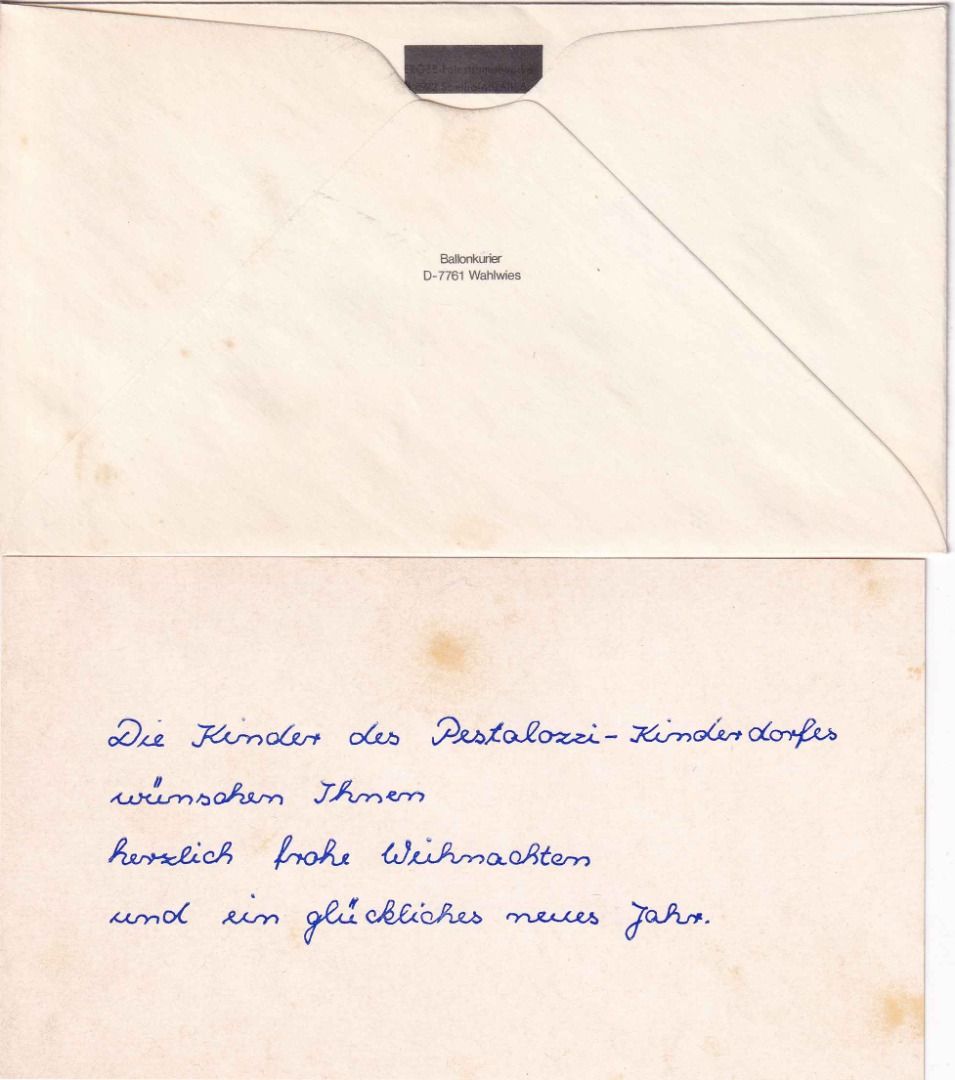 Ballonkurier
D-7761 Wahlwies
Die Kinder des Pestalozzi-Kinderdorfes
wünschen Ihnen
herzlich frohe Weihnachten
und ein glückliches neues Jahr.